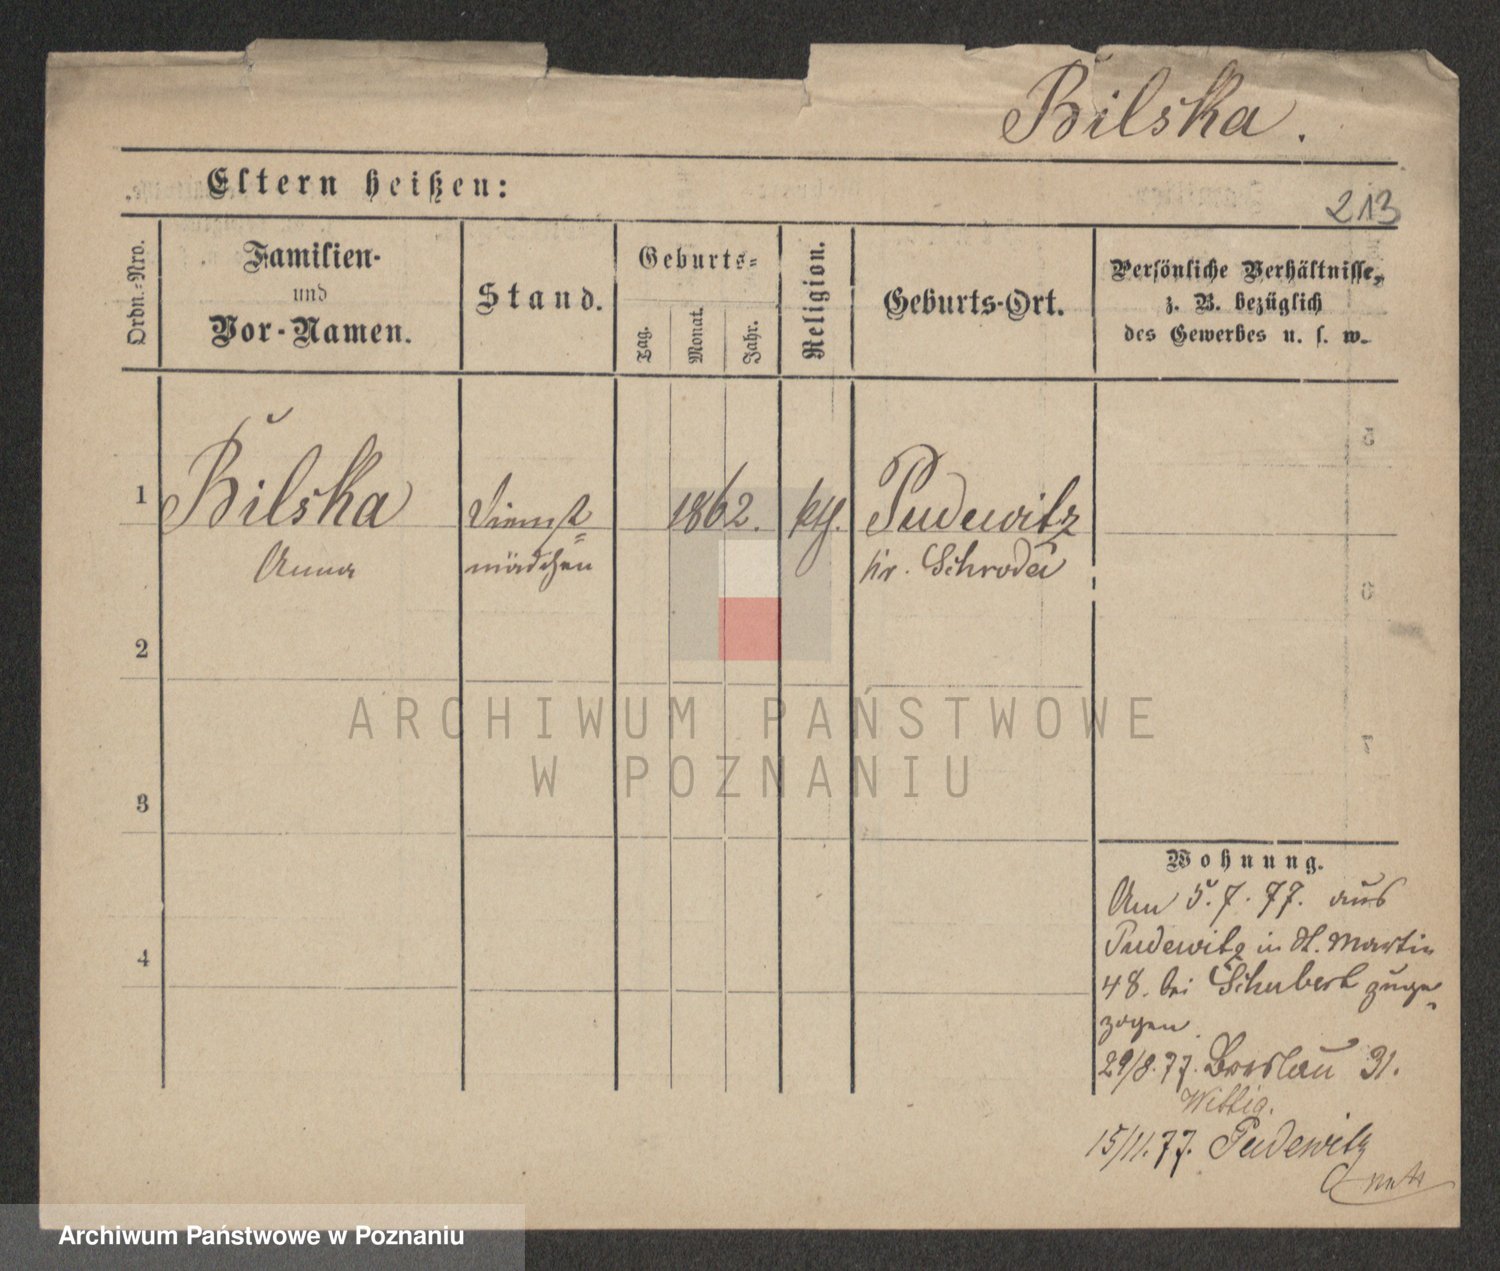 Bilska.
Eltern heißen:
213
Ordn.-Nro.
Familien-
und
Vor-Namen.
Stand.
Geburts-
Tag.
Monat.
Jahr.
Religion.
Geburts-Ort.
Persönliche Verhältnisse,
z. B. bezüglich
des Gewerbes u. s. w.
1
Bilska
Dienst=
1862.
kth.
Pudewitz
Anna
mädchen
kr. Schroda
2
ARCHIWUM PAŃSTWOWE
W POZNANIU
3
4
Wohnung.
Am 5.7.77. aus
Pudewitz in St. Martin
48. bei Schubert zuge-
zogen.
29/8.77. Breslau 31.
Wittig.
15/11.77. Pudewitz
Archiwum Państwowe w Poznaniu